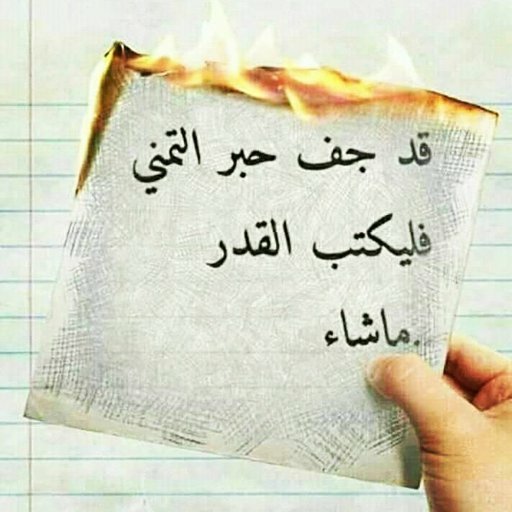 قد جف حبر التمني
فليكتب القدر
ماشاء.